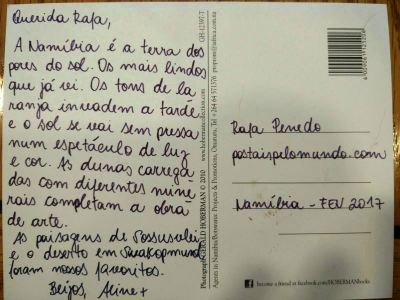 Querida Rafa,
A Namíbia é a terra dos
pores do sol. Os mais lindos
que já vi. Os tons de la
ranja invadem a tarde
e o sol se vai sem pressa
num espetáculo de luz
e cor. As dunas carrega
das com diferentes mine
rais completam a obra
de arte.
As paisagens de Sossusvlei
e o deserto em Swakopmund
foram nossos favoritos.
Beijos, Aline
GH-12397-T
www.hobermancollection.com
Photograph GERALD HOBERMAN © 2010
Agents in Namibia/Botswana: Projects & Promotions, Omaruru, Tel +264 64 571576
Rafa Penedo
postaispelomundo.com
Namíbia - FEV 2017
become a friend at facebook.com/HOBERMANbooks